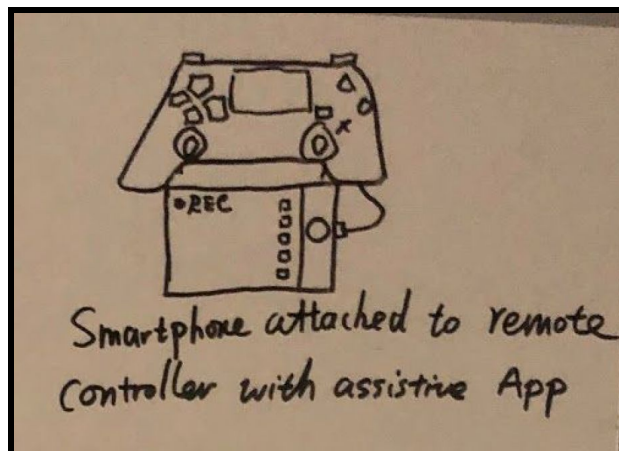 •REC
Smartphone attached to remote
controller with assistive App